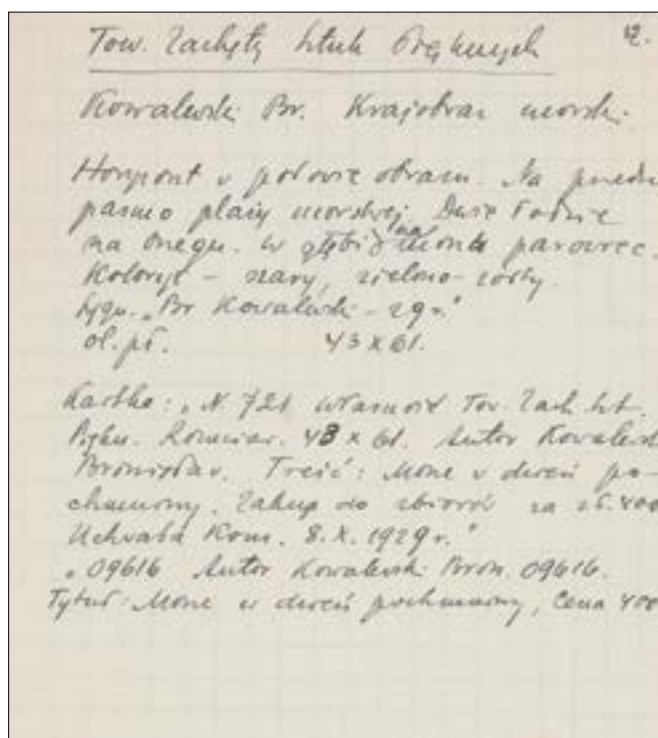 Tow. Zachęty Sztuk Pięknych 12.
Kowalewski Br. Krajobraz morski.
Horyzont w połowie obrazu. Na przedzie
pasmo plaży morskiej. Dwie łodzie
na brzegu. W głębi na morzu parowiec.
Koloryt – szary, zielono-żółty.
Sygn. „Br Kowalewski – 29 r."
ol. pł. 43 x 61.
Kartka: „N 721 Własność Tow. Zach. Szt.
Piękn. Rozmiar. 43 x 61. Autor Kowalewski
Bronisław. Treść: Morze w dzień po-
chmurny. Zakup do zbiorów za zł. 400
Uchwała Kom. 8. X. 1929 r."
„09616 Autor Kowalewski Bron. 09616.
Tytuł: Morze w dzień pochmurny, Cena 400